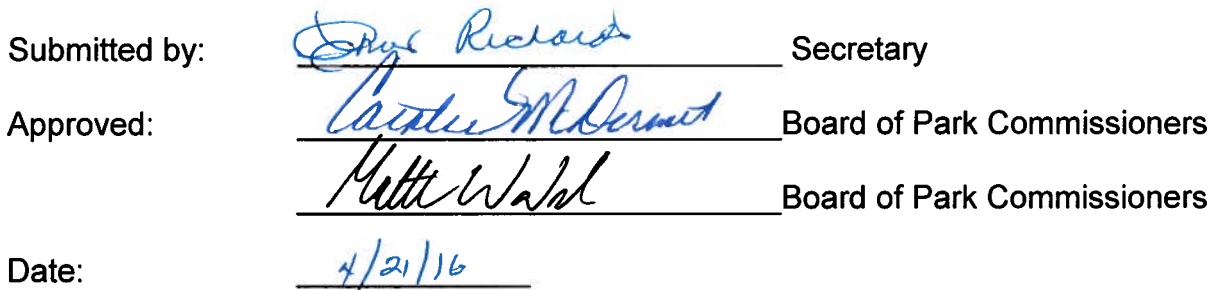 Submitted by: Richards Secretary
Approved: McDermott Board of Park Commissioners
Board of Park Commissioners
Date: 4/21/16